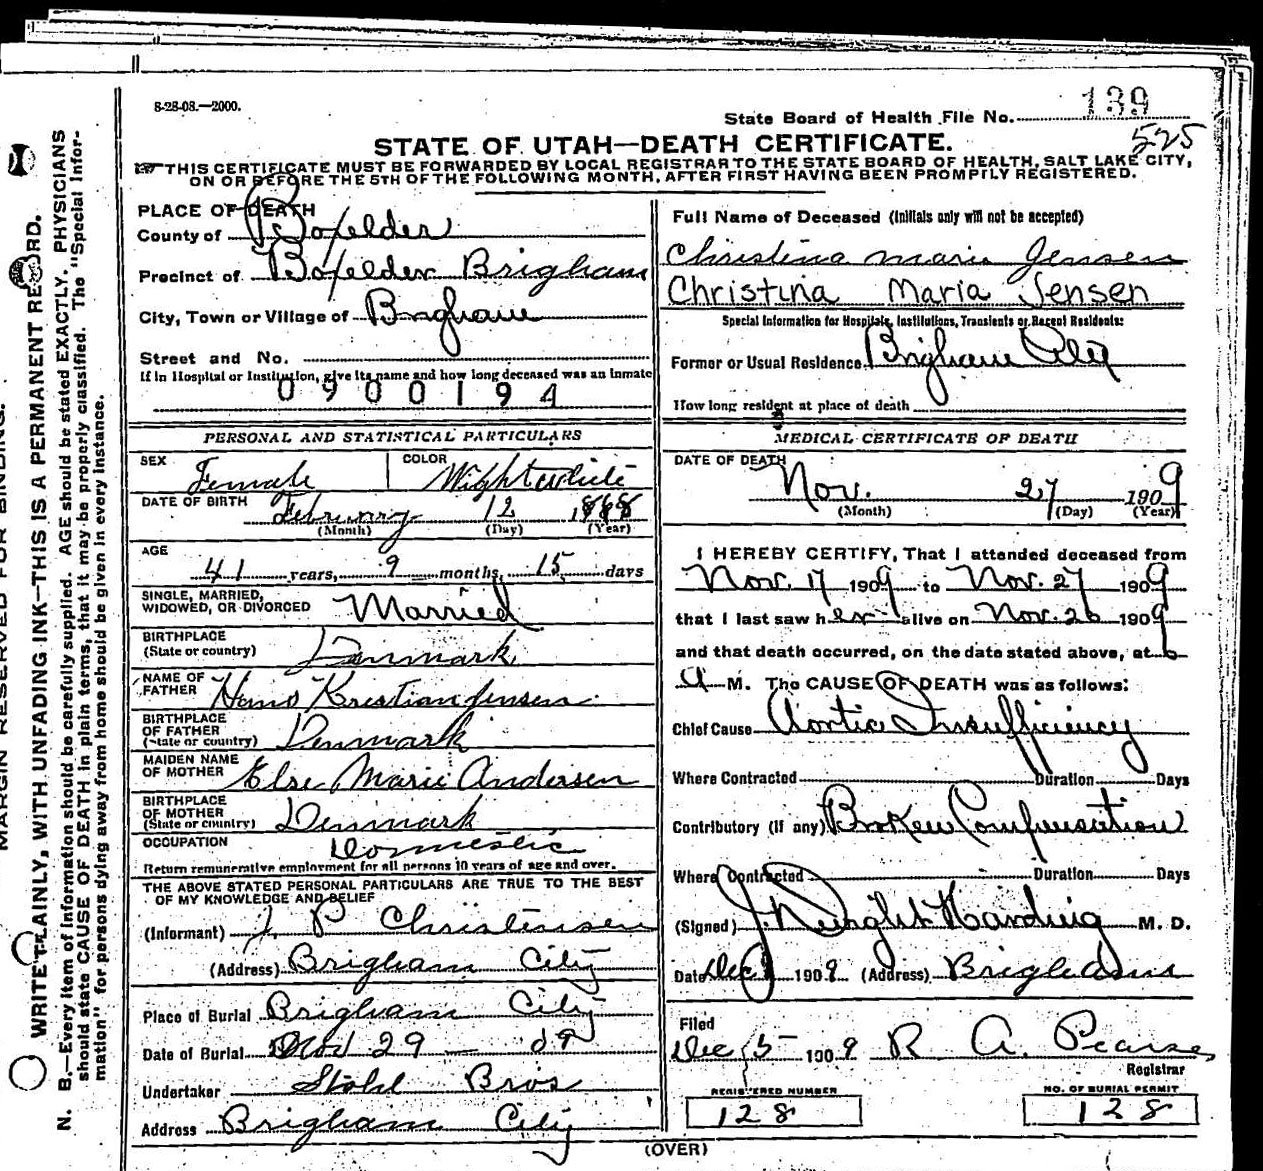 8-28-08.—2000.
State Board of Health File No. 139
525
STATE OF UTAH—DEATH CERTIFICATE.
THIS CERTIFICATE MUST BE FORWARDED BY LOCAL REGISTRAR TO THE STATE BOARD OF HEALTH, SALT LAKE CITY,
ON OR BEFORE THE 5TH OF THE FOLLOWING MONTH, AFTER FIRST HAVING BEEN PROMPTLY REGISTERED.
PLACE OF DEATH
County of Boxelder
Precinct of Boxelder Brigham
City, Town or Village of Brigham
Street and No.
If in Hospital or Institution, give its name and how long deceased was an inmate
0900194
PERSONAL AND STATISTICAL PARTICULARS
SEX Female COLOR Wight white
DATE OF BIRTH February 12 1868
(Month) (Day) (Year)
AGE 41 years, 9 months, 15 days
SINGLE, MARRIED,
WIDOWED, OR DIVORCED Married
BIRTHPLACE
(State or country) Denmark
NAME OF
FATHER Hans Krestian Jensen
BIRTHPLACE
OF FATHER
(State or country) Denmark
MAIDEN NAME
OF MOTHER Else Marie Andersen
BIRTHPLACE
OF MOTHER
(State or country) Denmark
OCCUPATION Domestic
Return remunerative employment for all persons 10 years of age and over.
THE ABOVE STATED PERSONAL PARTICULARS ARE TRUE TO THE BEST
OF MY KNOWLEDGE AND BELIEF
(Informant) J. P Christensen
(Address) Brigham City
Place of Burial Brigham City
Date of Burial Nov 29 — 09
Undertaker Stohl Bros
Address Brigham City
Full Name of Deceased (Initials only will not be accepted)
Christina Marie Jensen
Christina Maria Jensen
Special Information for Hospitals, Institutions, Transients or Recent Residents:
Former or Usual Residence Brigham City
How long resident at place of death
MEDICAL CERTIFICATE OF DEATH
DATE OF DEATH
Nov. 27 1909
(Month) (Day) (Year)
I HEREBY CERTIFY, That I attended deceased from
Nov. 17 1909 to Nov. 27 1909
that I last saw her alive on Nov. 26 1909
and that death occurred, on the date stated above, at 6
A M. The CAUSE OF DEATH was as follows:
Chief Cause Aortic Insufficiency
Where Contracted Duration Days
Contributory (if any) Broken Compensation
Where Contracted Duration Days
(Signed) J. Dwight Harding M. D.
Date Dec 1909 (Address) Brigham
Filed
Dec 5 1909 R A. Pearse
Registrar
REGISTERED NUMBER
128
NO. OF BURIAL PERMIT
128
(OVER)
MARGIN RESERVED FOR BINDING.
WRITE PLAINLY, WITH UNFADING INK—THIS IS A PERMANENT RECORD.
N. B.—Every item of information should be carefully supplied. AGE should be stated EXACTLY. PHYSICIANS
should state CAUSE OF DEATH in plain terms, that it may be properly classified. The "Special Infor-
mation" for persons dying away from home should be given in every instance.